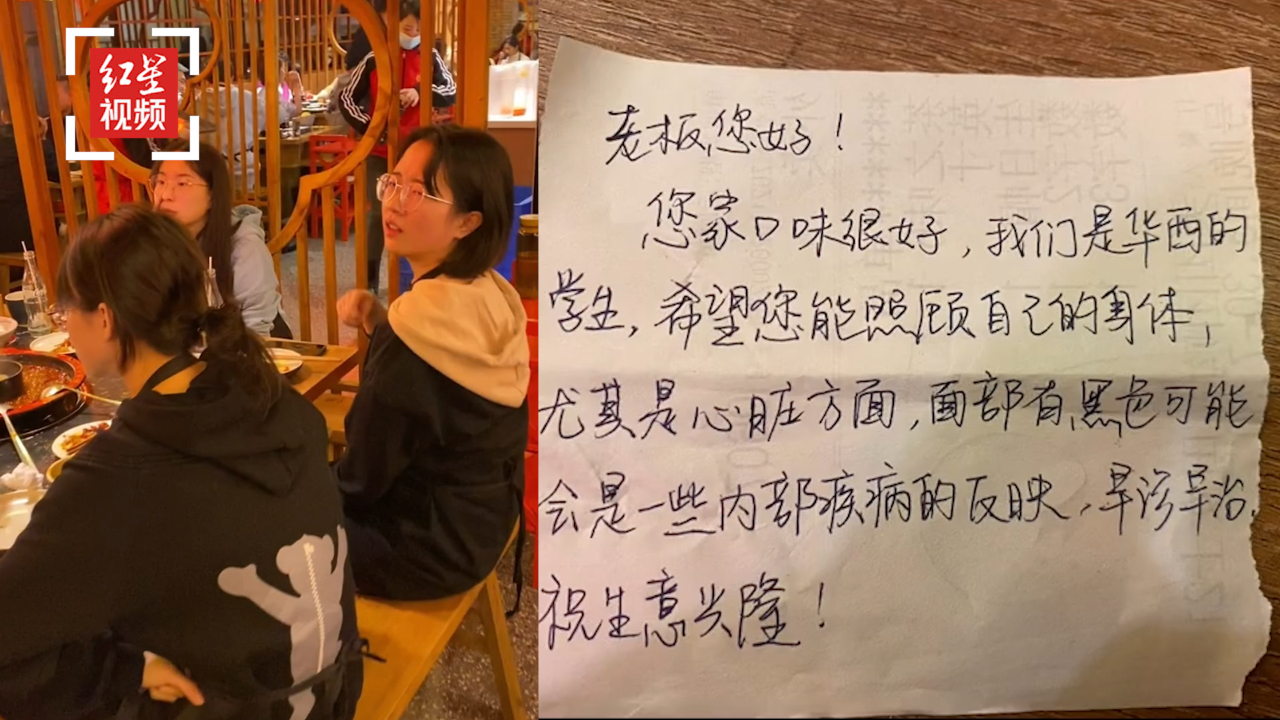 红星
视频
老板您好！
您家口味很好，我们是华西的
学生，希望您能照顾自己的身体，
尤其是心脏方面，面部有黑色可能
会是一些内部疾病的反映，早诊早治．
祝生意兴隆！